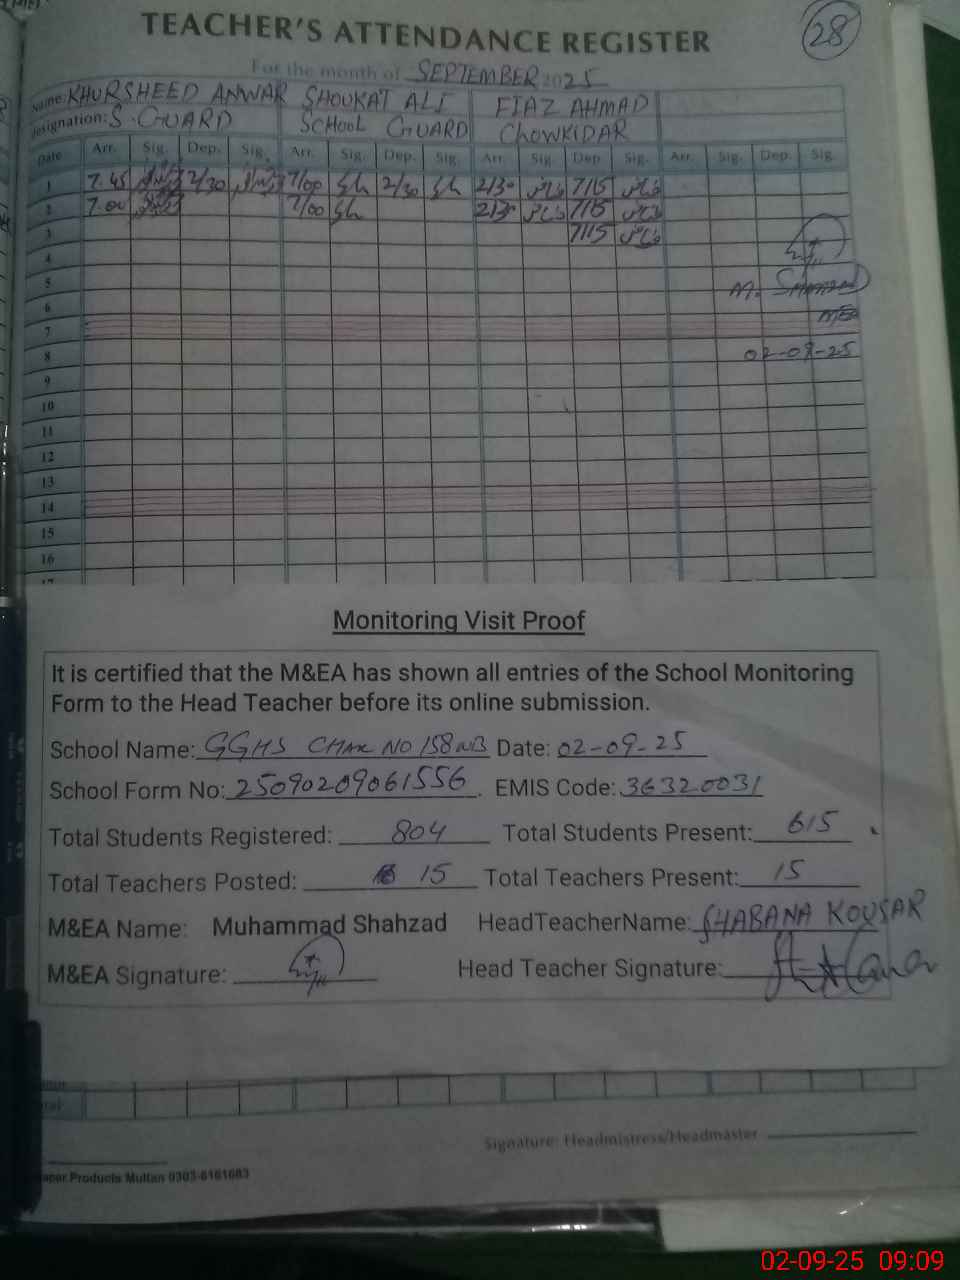 28
TEACHER'S ATTENDANCE REGISTER
For the month of SEPTEMBER 2025
Name: KHURSHEED ANWAR SHOUKAT ALI FIAZ AHMAD
designation: S. GUARD SCHOOL GUARD CHOWKIDAR
Date Arr. Sig. Dep. Sig. Arr. Sig. Dep. Sig. Arr. Sig. Dep. Sig. Arr. Sig. Dep. Sig.
1 7.45 2/30 7/00 Sh 2/30 Sh 2/30 فیاض 7/15 فیاض
2 7.00 7/00 Sh 2/30 فیاض 7/15 فیاض
3 7/15 فیاض
4
5 M. Shahzad
6 MEA
7
8 02-09-25
9
10
11
12
13
14
15
16
17
Monitoring Visit Proof
It is certified that the M&EA has shown all entries of the School Monitoring
Form to the Head Teacher before its online submission.
School Name: GGHS CHAK NO 158 WB Date: 02-09-25
School Form No: 25090209061556 EMIS Code: 36320031
Total Students Registered: 804 Total Students Present: 615
Total Teachers Posted: 15 Total Teachers Present: 15
M&EA Name: Muhammad Shahzad HeadTeacherName: SHABANA KOUSAR
M&EA Signature: Head Teacher Signature:
Signature: Headmistress/Headmaster
Paper Products Multan 0303-6161683
02-09-25 09:09